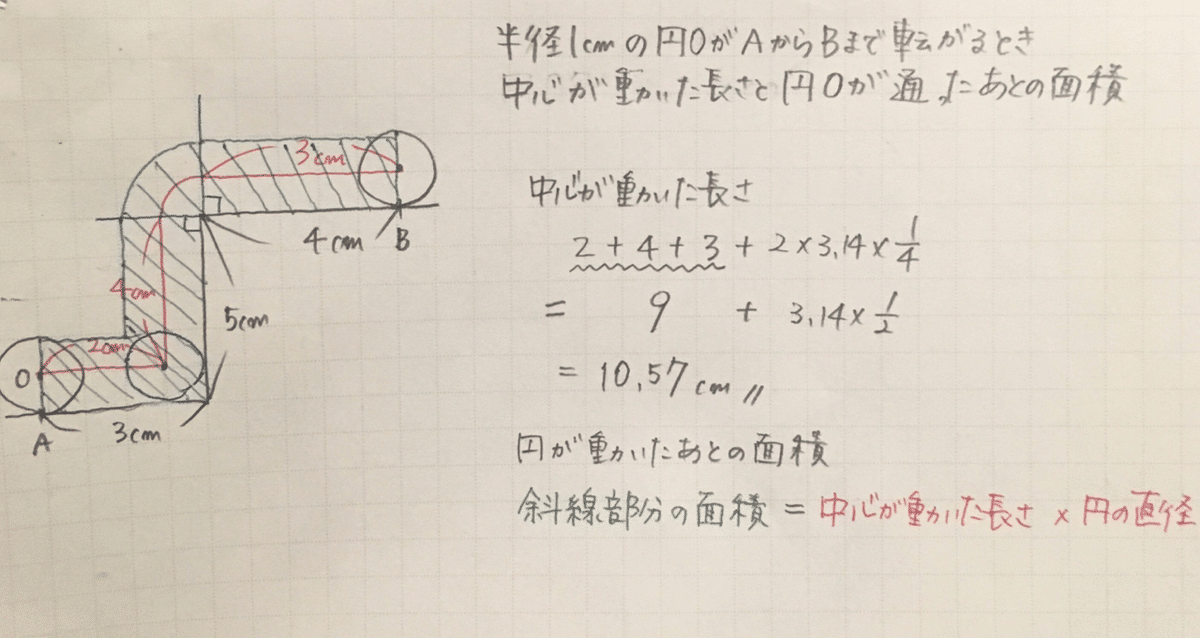 半径1cmの円OがAからBまで転がるとき
中心が動いた長さと円Oが通ったあとの面積
3cm
4cm
B
4cm
5cm
2cm
O
A
3cm
中心が動いた長さ
2+4+3+2×3.14×1/4
= 9 + 3.14×1/2
= 10.57cm〃
円が動いたあとの面積
斜線部分の面積 = 中心が動いた長さ × 円の直径